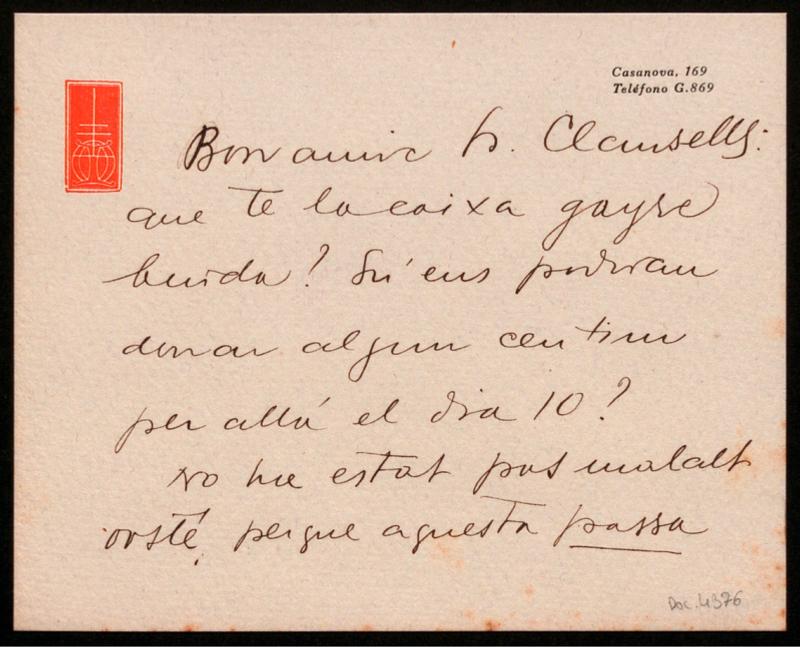 Casanova, 169
Teléfono G.869
Bon amic Sr. Clausells:
que te la caixa gayre
buida? Si ens podrian
donar algun centim
per allá el dia 10?
No ha estat pas malalt
vosté, perque aquesta passa
Doc. 4376